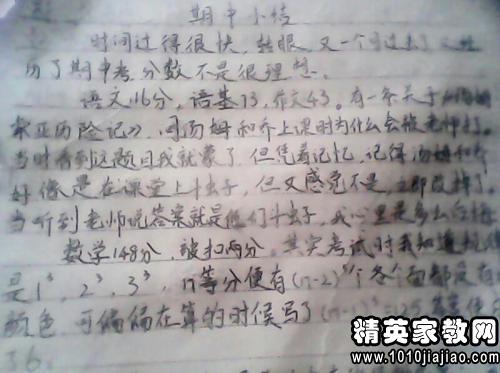 期中小结
时间过得很快，转眼又一个月过去了，又经
历了期中考，分数不是很理想。
语文116分，语基73，作文43。有一条关于《汤姆
索亚历险记》，问汤姆和乔上课时为什么会被老师打。
当时看到这题目我就蒙了，但凭着记忆，记得汤姆和乔
好像是在课堂上斗虫子，但又感觉不是，立即改掉了。
当听到老师说答案就是他们斗虫子，我心里是多么后悔
数学148分，被扣两分。其实考试时我知道规律
是1³，2³，3³，n等分便有(n-2)³个各个面都没有
颜色，可偏偏在算的时候写了
36。
精英家教网
www.1010jiajiao.com